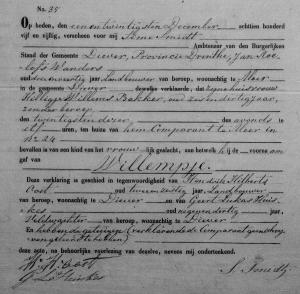 No. 35
Op heden, den een en twintigsten December achttien honderd
vijf en vijftig, verscheen voor mij Sime Smidt
Ambtenaar van den Burgerlijken
Stand der Gemeente Diever, Provincie Drenthe, Jan Roe-
lofs Wanders
oud vierenveertig jaar, Landbouwer van beroep, woonachtig te
in de gemeente Diever dewelke verklaarde, dat zijne huisvrouw
Hilligje Willems Bakker, oud zes en dertig jaar,
zonder beroep
den twintigsten dezer des avonds te
elf uren, ten huize van hem Comparant te
N: 24
bevallen is van een kind van het vrouwelijk geslacht, aan hetwelk hij de voornaam
gaf van Willempje.
Deze verklaring is geschied in tegenwoordigheid van Hendrik Hilberts
Oost oud twee en zestig jaar, Landbouwer
van beroep, woonachtig te Diever en van Geert Lukas Huis-
kes oud negen en dertig jaar,
Veldwachter van beroep, woonachtig te Diever
En hebben de getuigen (verklarende de Comparant geen schrij-
ven geleerd te hebben)
deze acte, na behoorlijke voorlezing van dezelve, nevens mij ondertekend.
H. H. Oost
G. L. Huiskes
S. Smidt